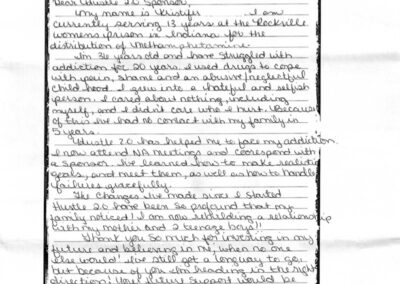 Dear Hustle 2.0 Sponsor,
My name is Kristifer I am
currently serving 13 years at the Rockville
womens prison in Indiana for the
distribution of Methamphetamine.
Im 36 years old and have struggled with
addiction for 20 years. I used drugs to cope
with pain, shame and an abusive/neglectful
childhood. I grew into a hateful and selfish
person. I cared about nothing, including
myself, and I didn't care who I hurt. Because
of this Ive had no contact with my family in
5 years.
Hustle 2.0 has helped me to face my addiction.
I now attend NA meetings and coorespond with
a Sponsor. Ive learned how to make realistic
goals, and meet them, as well as how to handle
failures gracefully.
The changes Ive made since I started
Hustle 2.0 have been so profound that my
family noticed! I am now rebuilding a relationship
with my mother and 2 teenage boys!!
Thank you so much for investing in my
future and believing in me, when no one
else would! Ive still got a long way to go,
but because of you Im heading in the right
direction! Your future support would be